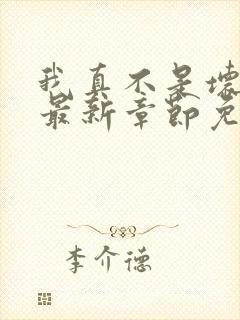 我真不是坏
最新章节免
李介德